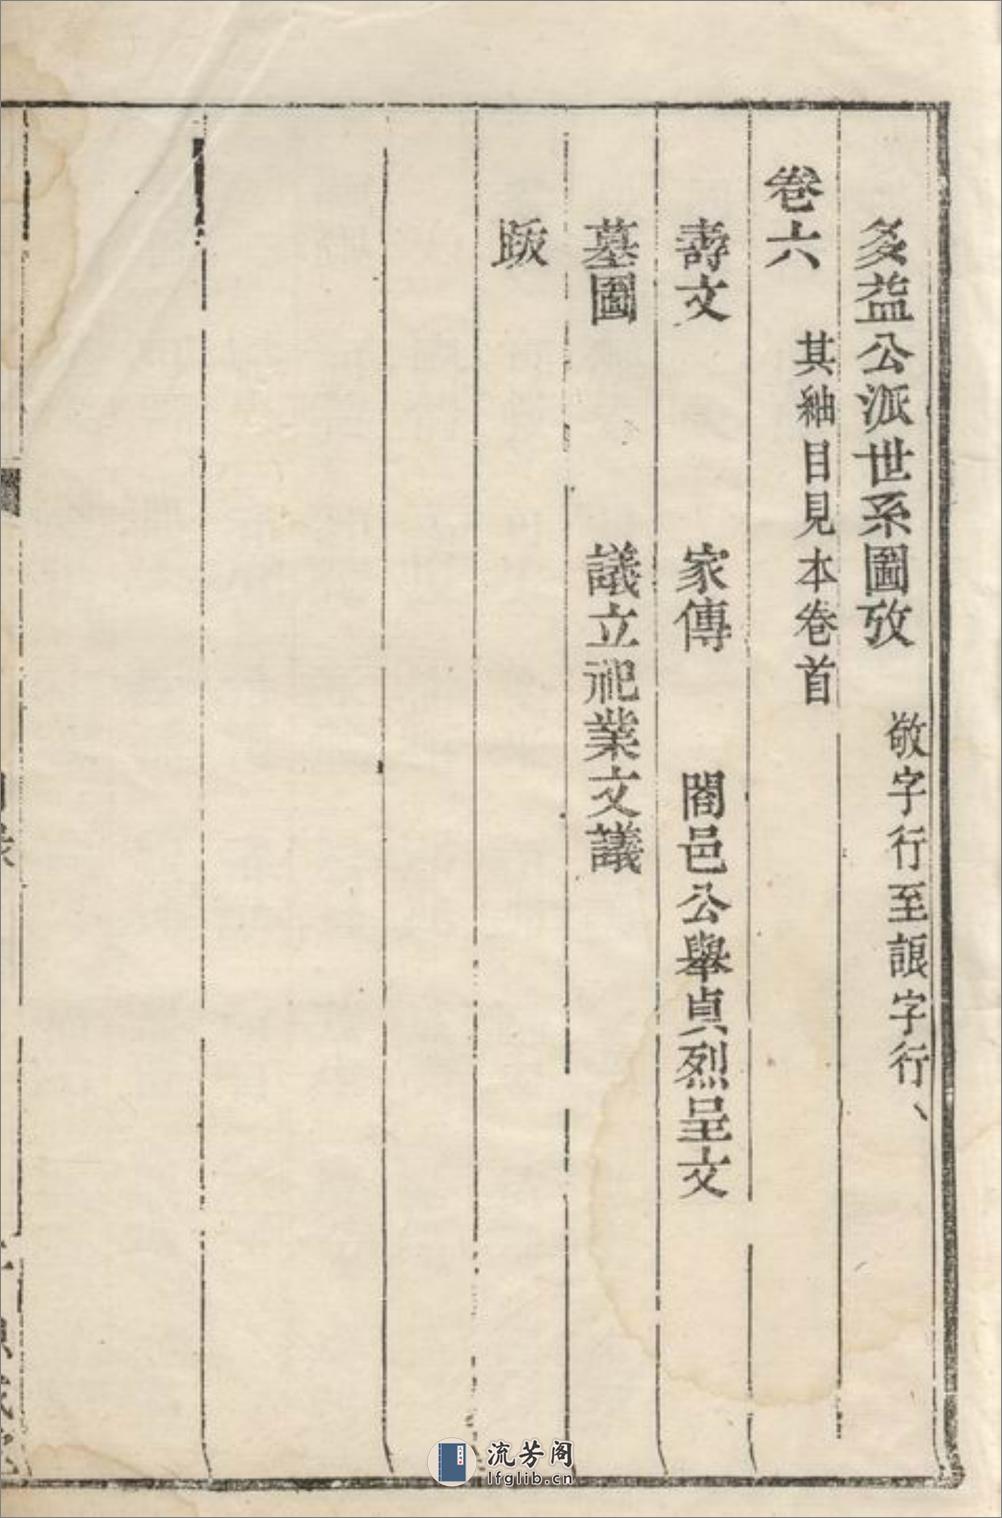 多益公派世系圖攷 敬字行至詪字行、
卷六 其紬目見本卷首
壽文 家傳 閤邑公舉貞烈呈文
墓圖 議立祀業文議
䟦
目錄
流芳阁
lfglib.cn